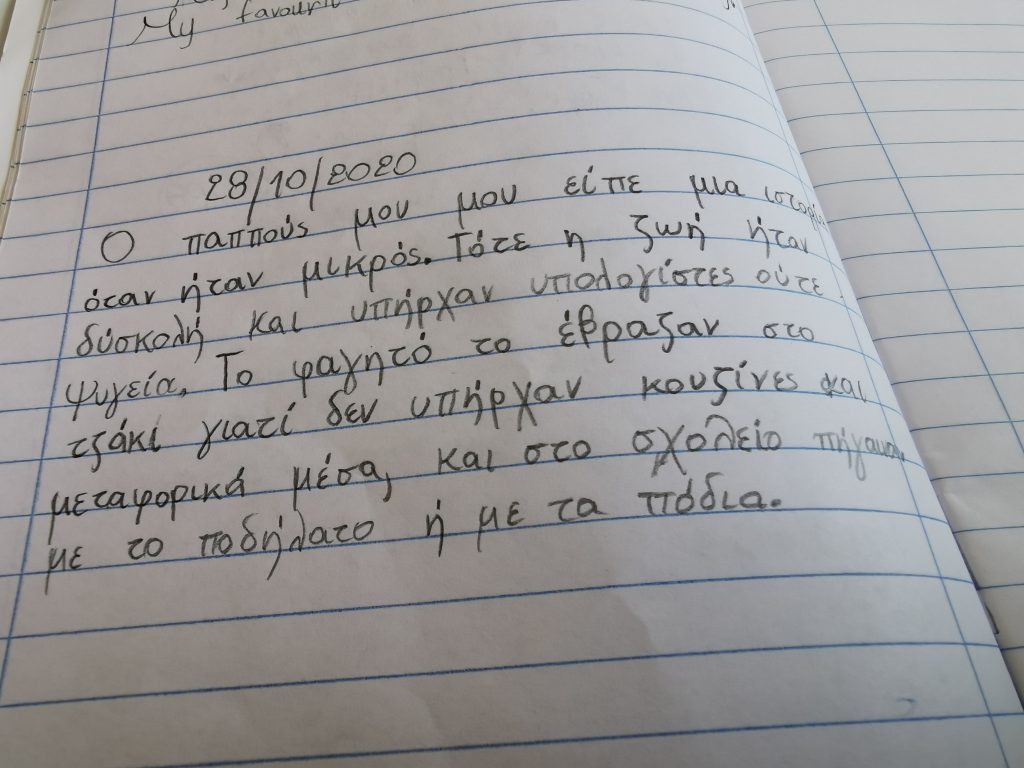 My
28/10/2020
Ο παππούς μου μου είπε μια
όταν ήταν μικρός. Τότε η ζωή ήταν
δύσκολή και υπήρχαν υπολογίστες ούτε
ψυγεία. Το φαγητό το έβραζαν στο
τζάκί γιατί δεν υπήρχαν κουζίνες και
μεταφορικά μέσα, και στο σχολείο
με το ποδήλατο ή με τα πόδια.